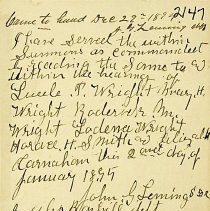 Came to hand Dec 29th 1894
2147
I have served the within
Summons as commanded
by reading the same to and
within the hearing of
Lucele P. Wright Henry H.
Wright Roderick M.
Wright Lodena Wright
Horace H. Smith
Carnahan this 2nd day of
January 1895
John G